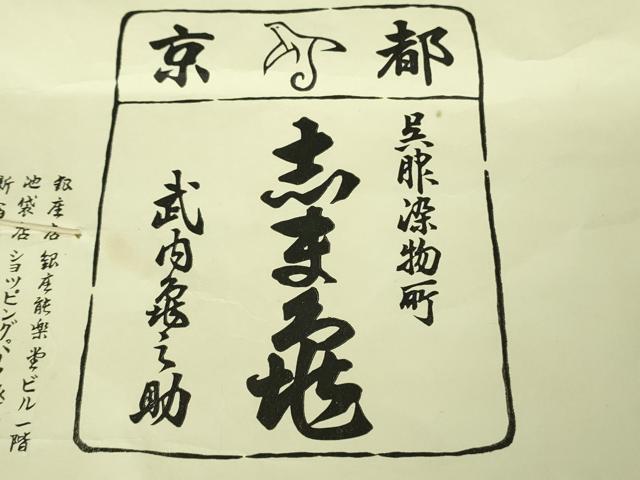 京都
呉服染物所
志ま亀
武内亀之助
銀座店 銀座能楽堂ビル一階
池袋店 ショッピングパ
新